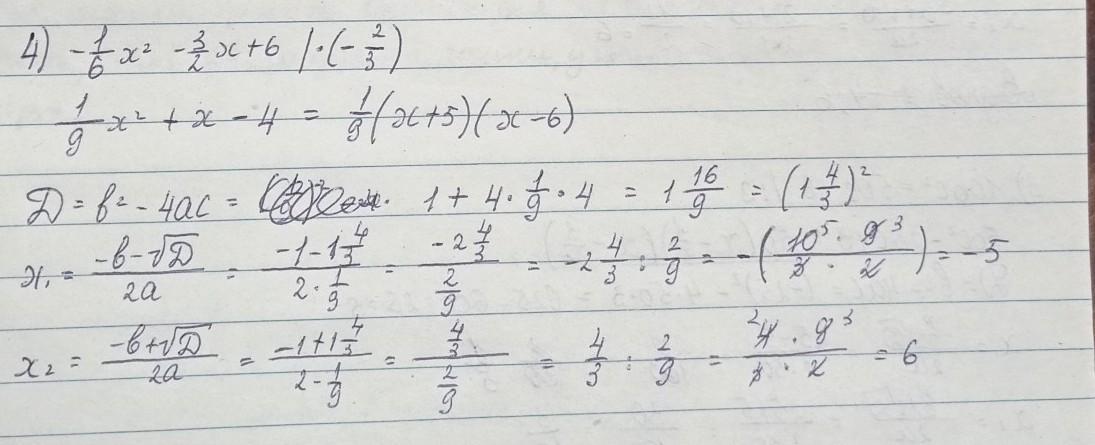 4) -1/6 x² - 3/2 x + 6 | · (-2/3)
1/9 x² + x - 4 = 1/9 (x+5)(x-6)
D = b² - 4ac = 1 + 4 · 1/9 · 4 = 1 16/9 = (1 4/3)²
x₁ = (-b-√D)/2a = (-1-1 4/3)/(2 · 1/9) = (-2 4/3)/(2/9) = -2 4/3 : 2/9 = -(10⁵ · 9³)/(3 · 2) = -5
x₂ = (-b+√D)/2a = (-1+1 4/3)/(2-1/9) = (4/3)/(2/9) = 4/3 : 2/9 = (²4 · 9³)/(3 · 2) = 6